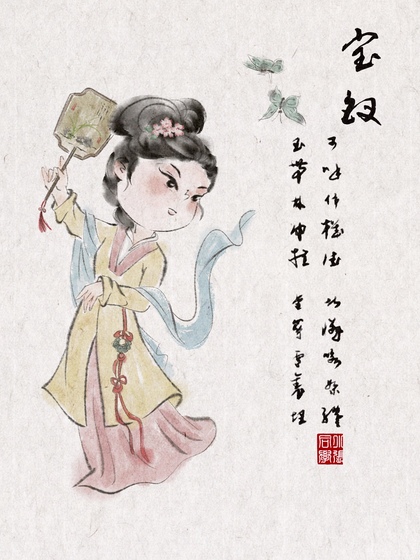 宝钗
可叹停机德 堪怜咏絮才
玉带林中挂 金簪雪里埋